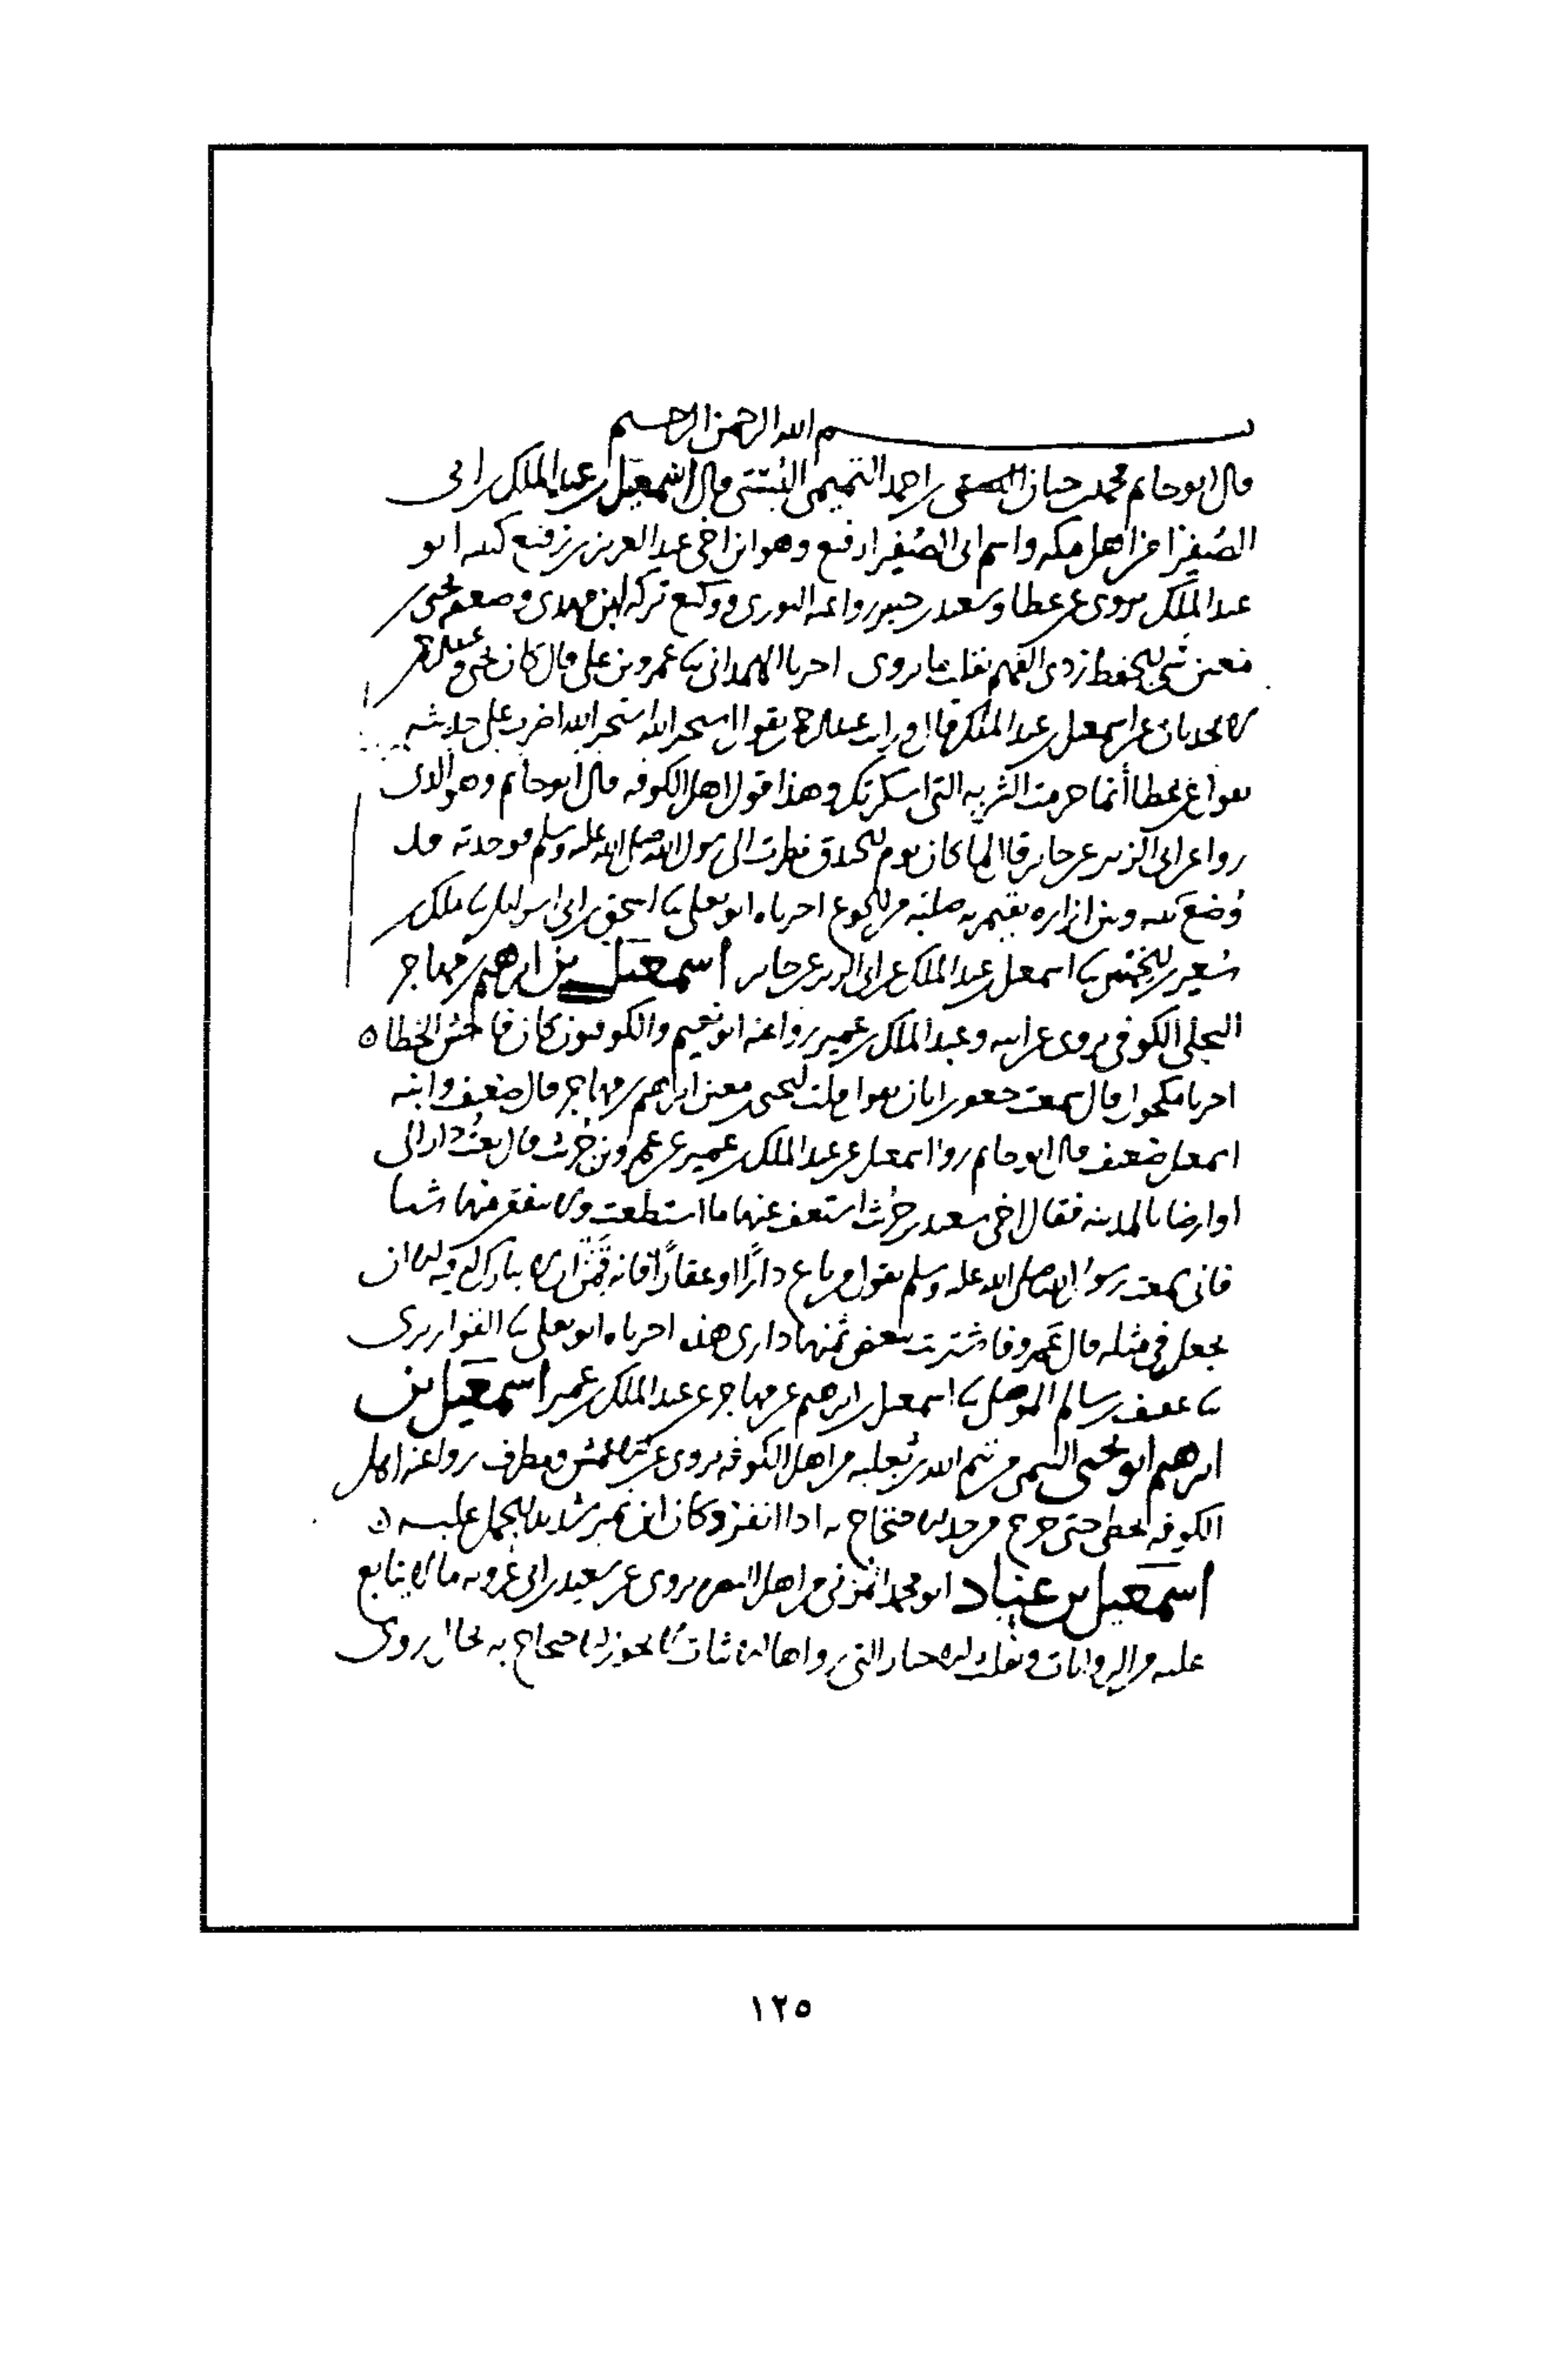 بسم الله الرحمن الرحيم
قال ابو حاتم محمد بن حبان بن احمد التميمي البستي قال اسمعيل بن عبد الملك بن ابى
الصُفيرا من اهل مكه واسم ابى الصُفيرا رفيع وهو ابن اخى عبد العزيز بن رفيع كنيته ابو
عبد الملك يروى عن عطا وسعيد بن جبير روا عنه الثورى ووكيع تركه ابن مهدى وضعفه يحيى بن
معين سَىّ الحفظ ردى الفهم يقلب ما يروى اخبرنا الهمدانى نا عمرو بن على قال كان يحيى وعبد الرحمن
لا يحدثان عن اسمعيل بن عبد الملك قال ورايت عبد الرحمن يقول استخير الله استخير الله اضرب على حديثه
عن عطا أنما حرمت الشربه التى اسكرتك وهذا قول اهل الكوفه قال ابو حاتم وهو الذى
روا عن ابى الزبير عن جابر قال لما كان يوم الخندق نظرت الى رسول الله صلى الله عليه وسلم فوجدته قد
وُضع بينه وبين ازاره يقيم به صلبه من الجوع اخبرناه ابو يعلى نا اسحق بن ابى اسرائيل نا ملك بن
سُعير بن الخمس نا اسمعيل بن عبد الملك عن ابى الزبير عن جابر اسمعيل بن ابرهيم بن مهاجر
البجلى الكوفى يروى عن ابيه وعبد الملك بن عمير روا عنه ابو نعيم والكوفيون كان فاحش الخطا ه
اخبرنا مكحول قال سمعت جعفر بن ابان يقول قلت ليحيى بن معين ابراهيم بن مهاجر قال ضعيف وابنه
اسمعيل ضعيف قال ابو حاتم روا اسمعيل عن عبد الملك بن عمير عن عمرو بن حُريث قال بعتُ دارا لى
او ارضا بالمدينه فقال لى اخى سعيد بن حُريث استعف عنها ما استطعت ولا تنفق منها شيا
فانى سمعت رسول الله صلى الله عليه وسلم يقول من باع دارًا او عقارًا فانه قَمَنٌ ان لا يبارك له فيه الا ان
يجعل فى مثله قال عَمرو فاشتريت ببعض ثمنها دارى هذه اخبرناه ابو يعلى نا القواريرى
نا عفيف بن سالم الموصلى نا اسمعيل بن ابرهيم عن مهاجر عن عبد الملك بن عمير اسمعيل بن
ابرهيم ابو يحيى التيمى من تيم الله بن ثعلبه من اهل الكوفه يروى عن الاعمش ومطرف روا عنه اهل
الكوفه يخطى حتى خرج من حد الاحتجاج به اذا انفرد وكان ابن نمير شديد الحمل عليه ه
اسمعيل بن عباد ابو محمد المزنى من اهل البصره يروى عن سعيد بن ابى عروبه ما لا يتابع
عليه من الروايات ويقلب الاخبار التى رواها الاثبات لا يجوز الاحتجاج به بحال روى
١٢٥